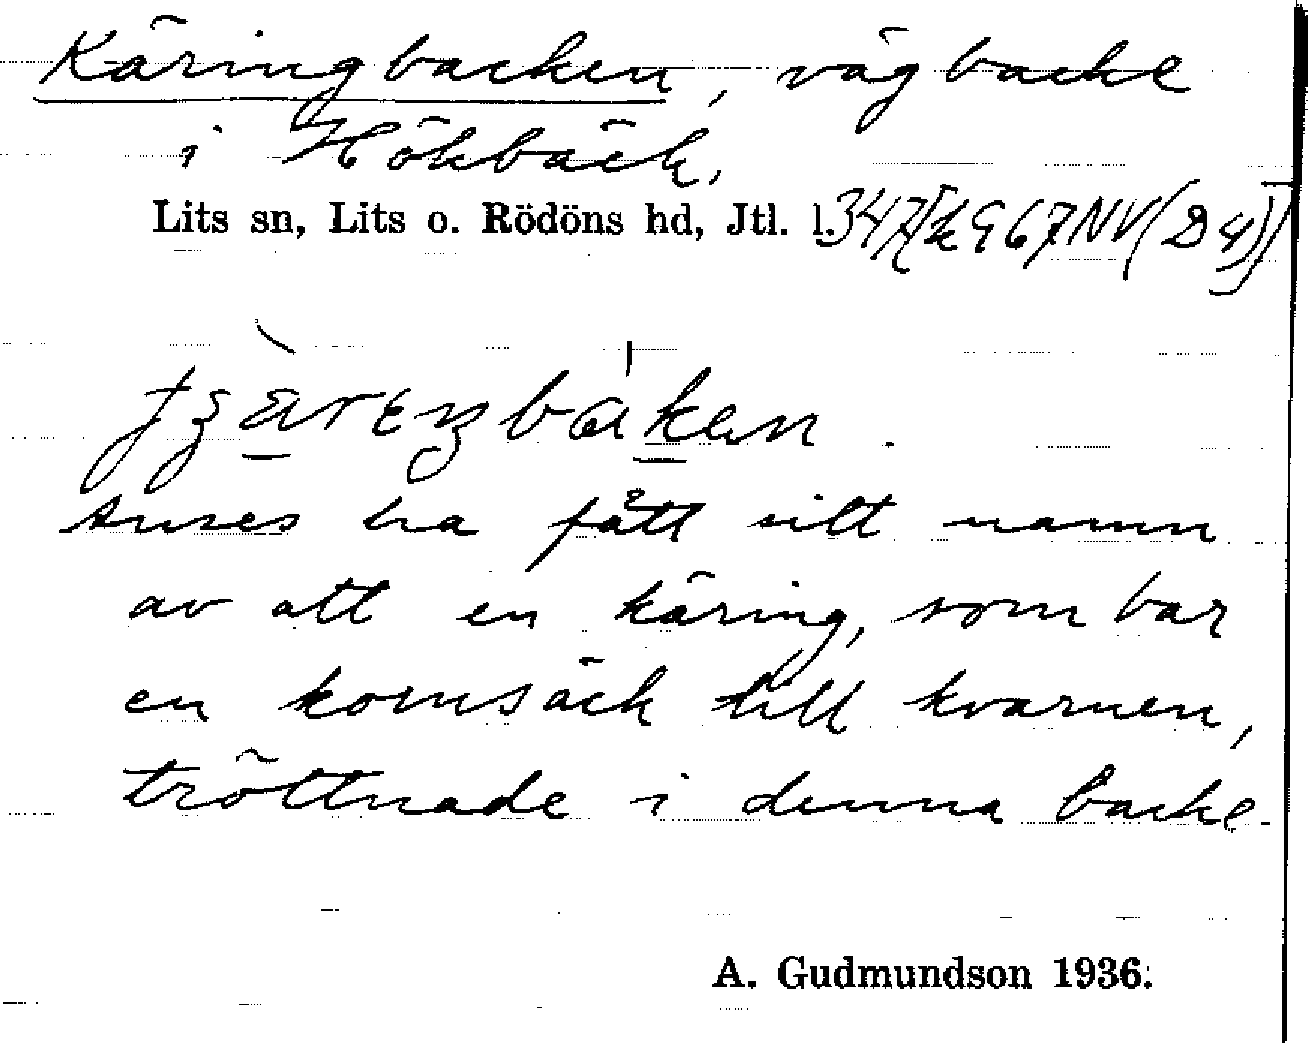 Käringbacken, vägbacke
i Hökbäck.
Lits sn, Lits o. Rödöns hd, Jtl. l.
Anses ha fått sitt namn
av att en käring, som bar
en kornsäck till kvarnen,
tröttnade i denna backe.
A. Gudmundson 1936.